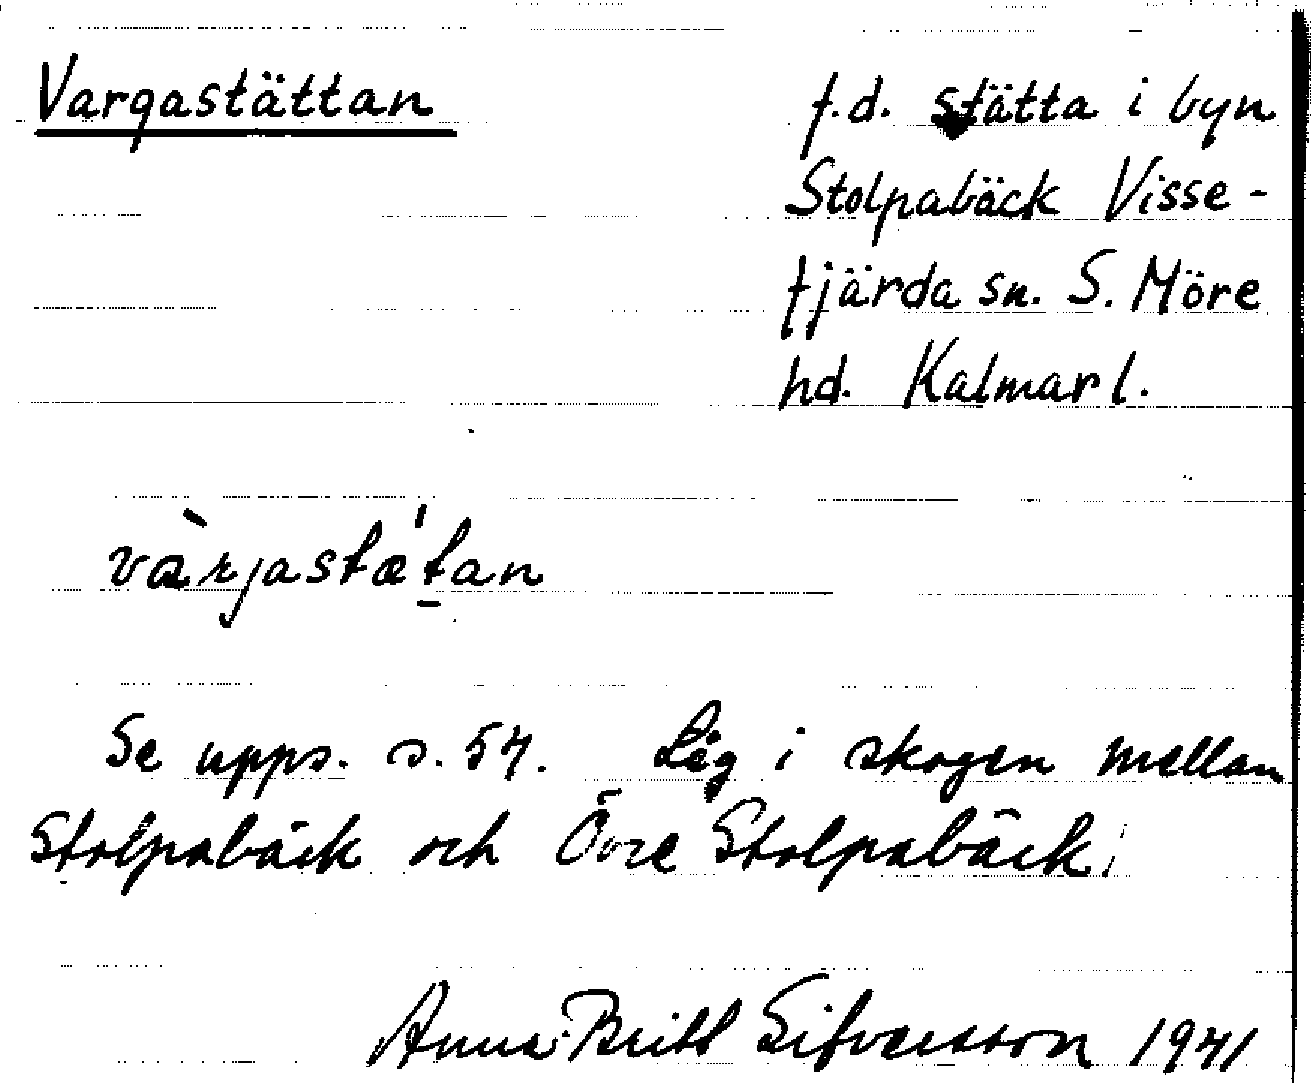 Vargastättan
f.d. stätta i byn
Stolpabäck Visse-
fjärda sn. S. Möre
hd. Kalmar l.
vàrjastæ'tan
Se upps. s. 54. Låg i skogen mellan
Stolpabäck och Övre Stolpabäck.
Anna-Britt Sifversson 1941